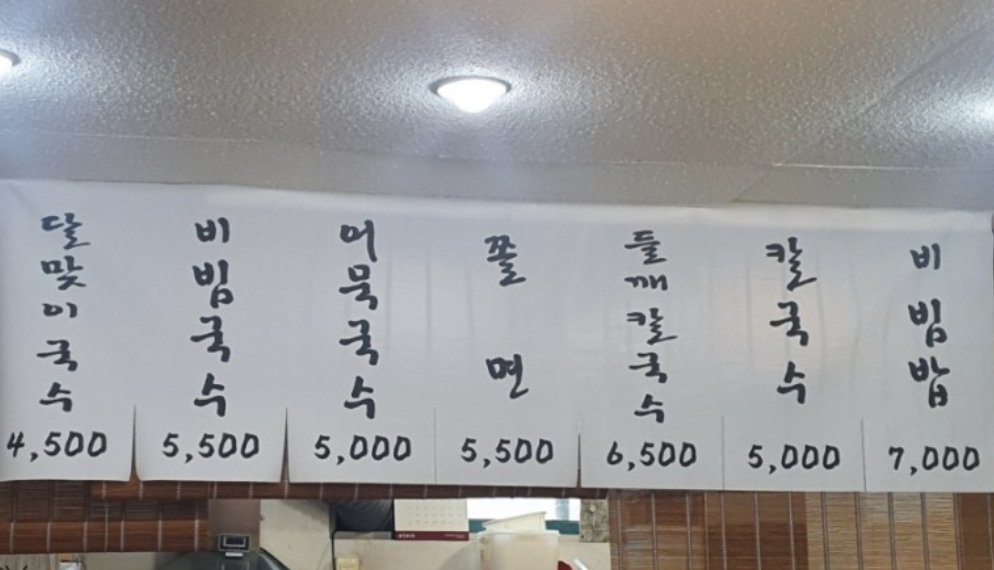 달맞이국수
4,500
비빔국수
5,500
어묵국수
5,000
쫄면
5,500
들깨칼국수
6,500
칼국수
5,000
비빔밥
7,000